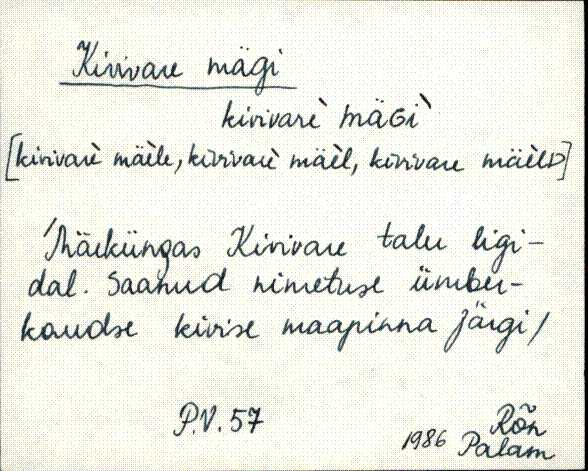 Kivivare mägi
kivivarè mäGì
[kivivarè mäèle, kivivarè mäèl, kivivare mäèld]
/Mäeküngas Kivivare talu ligi-
dal. Saanud nimetuse ümber-
kaudse kivise maapinna järgi/
P.V. 57
1986 Rõn
Palam